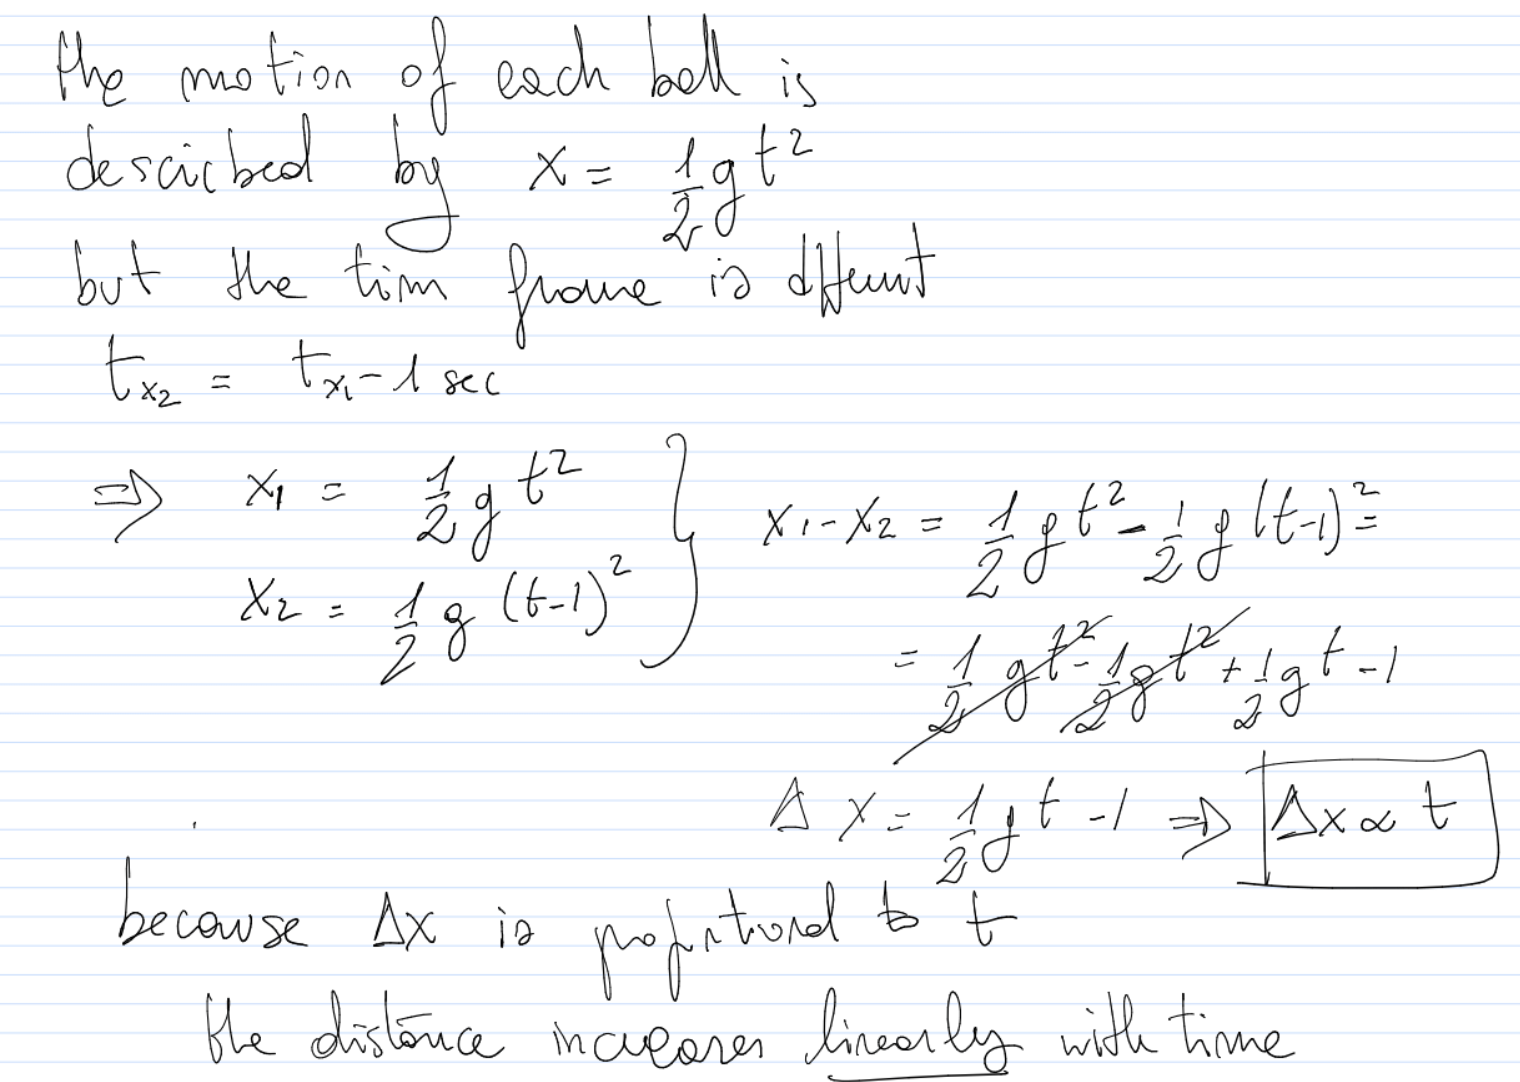 the motion of each ball is
described by x = 1/2 g t²
but the tim frame is different
t_x₂ = t_x₁ - 1 sec
⇒ x₁ = 1/2 g t²
x₂ = 1/2 g (t-1)²
} x₁ - x₂ = 1/2 g t² - 1/2 g (t-1)² =
= 1/2 g t² - 1/2 g t² + 1/2 g t - 1
Δx = 1/2 g t - 1 ⇒ Δx ∝ t
because Δx is proportional to t
the distance increases linearly with time